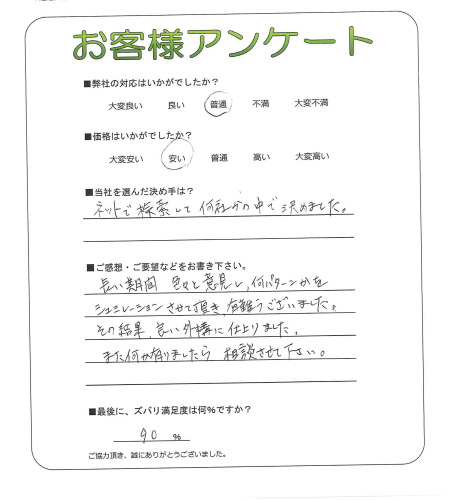 お客様アンケート
■弊社の対応はいかがでしたか？
大変良い 良い 普通 不満 大変不満
■価格はいかがでしたか？
大変安い 安い 普通 高い 大変高い
■当社を選んだ決め手は？
ネットで検索して何社かの中で決めました。
■ご感想・ご要望などをお書き下さい。
長い期間 色々と意見し、何パターンかを
シュミレーションさせて頂き、有難うございました。
その結果、良い外構に仕上りました。
また何か有りましたら 相談させて下い。
■最後に、ズバリ満足度は何%ですか？
90 %
ご協力頂き、誠にありがとうございました。